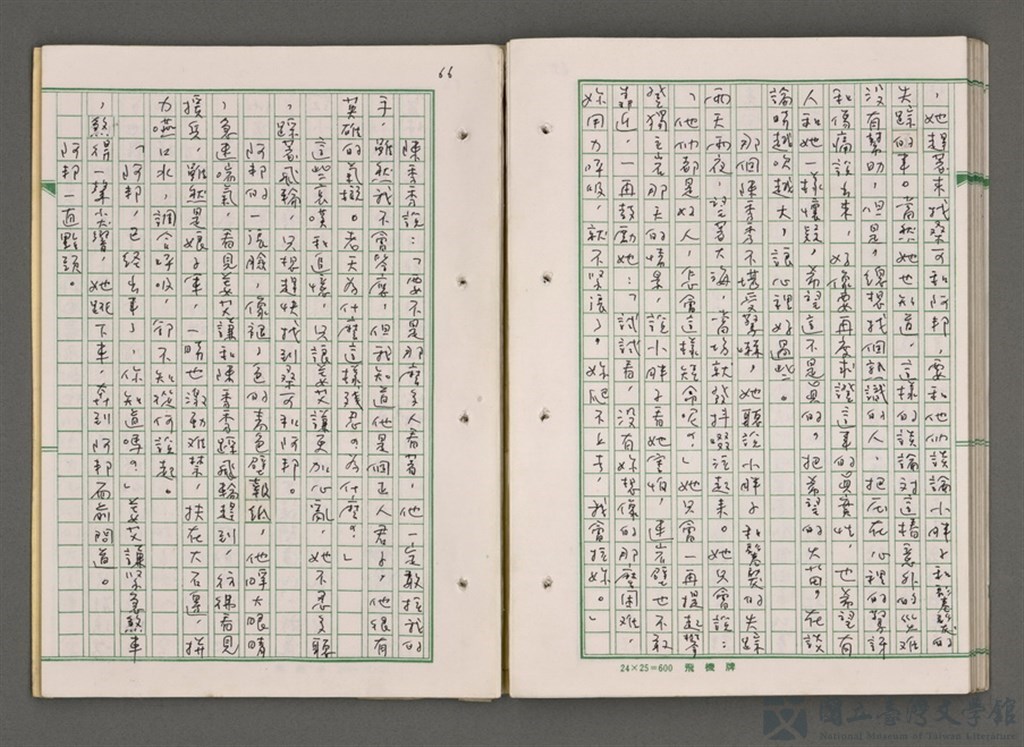 ，她趕著來找桑可和阿邦，要和他們談論小胖子和髮髮的
失蹤的事。當然她也知道，這樣的談論對這樁意外的災難
沒有幫助，但是，總想找個熟識的人，把压在心裡的驚訝
和傷痛說出來，好像要再度求證這事的真實性，也希望有
人和她一樣懷疑，希望這不是真的，把希望的火苗，在談
論時越吹越大，讓心裡好過些。
那個陳秀秀不堪受驚嚇，她聽說小胖子和髮髮的失蹤
雨天雨夜，望著大海，當場就發抖啜泣起來。她只會說：
「他們都是好人，怎會這樣短命呢？」她只會一再提起攀
登獨王岩那天的情景，說小胖子看她害怕，連岩壁也不敢
靠近，一再鼓勵她：「試試看，沒有妳想像的那麼困難，
妳用力呼吸，就不緊張了。妳爬不上去，我會拉妳。」
24×25=600 飛機牌
66
陳秀秀說：「要不是那麼多人看著，他一定敢拉我的
手，雖然我不會攀岩，但我知道他是個正人君子，他很有
英雄的氣概。老天為什麼這樣殘忍？為什麼？」
這些哀嘆和追憶，只讓姜艾謙更加心亂，她不忍多聽
，踩著飛輪，只想趕快找到桑可和阿邦。
阿邦的一張臉，像褪了色的青色壁報紙，他睜大眼睛
，急速喘氣，看見姜艾謙和陳秀秀踩飛輪趕到，彷彿看見
援兵，雖然是娘子軍，一時也激動難禁，扶在大石邊，拼
力嚥口水，調合呼吸，卻不知從何說起。
「阿邦，已經出事了，你知道嗎？」姜艾謙緊急煞車
，煞得一聲尖響，她跳下車，奔到阿邦面前問道。
阿邦一直點頭。
國立臺灣文學館
National Museum of Taiwan Literature